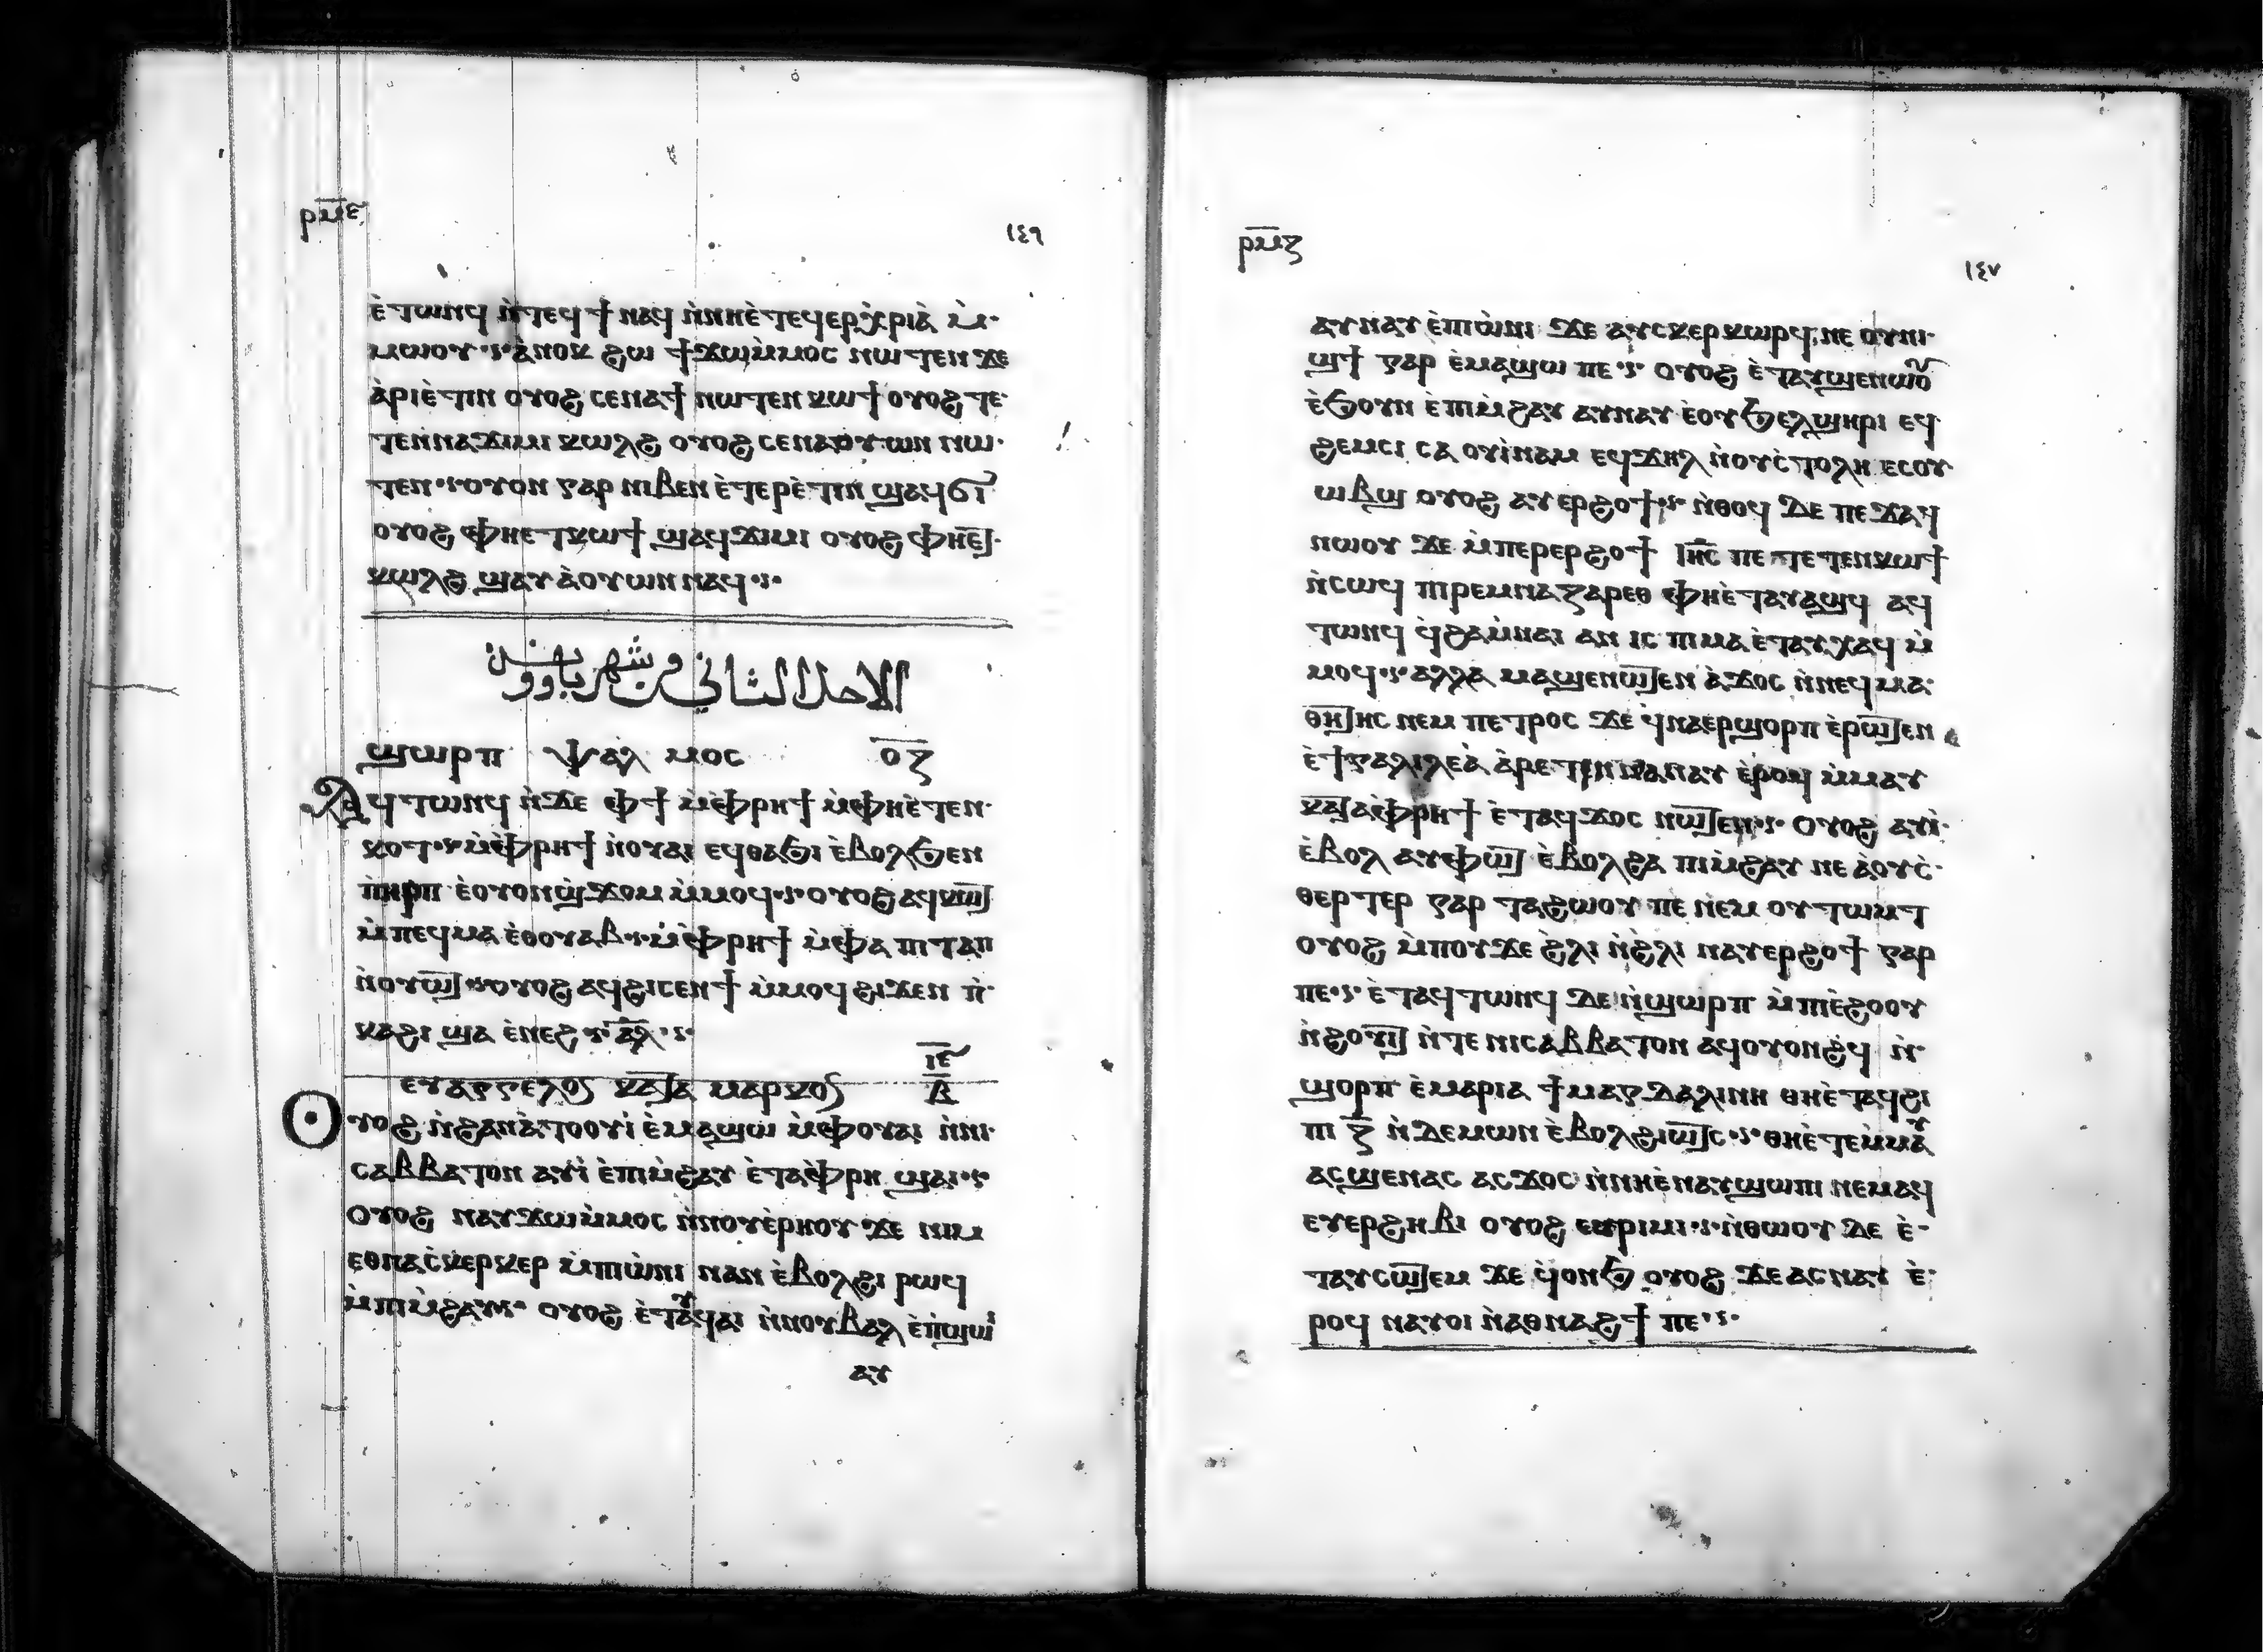 ⲣⲙ̅ⲋ
١٤٦
ⲉ̀ⲧⲱⲛϥ ⲛ̀ⲧⲉϥϯ ⲛⲁϥ ⲛ̀ⲛⲏⲉ̀ⲧⲉϥⲉⲣⲭ̀ⲣⲓⲁ̀ ⲙ̀
ⲙⲱⲟⲩ ⲁ̀ⲛⲟⲕ ϩⲱ ϯϫⲱⲙ̀ⲙⲟⲥ ⲛⲱⲧⲉⲛ ϫⲉ
ⲁ̀ⲣⲓⲉ̀ⲧⲓⲛ ⲟⲩⲟϩ ⲥⲉⲛⲁϯ ⲛⲱⲧⲉⲛ ⲕⲱϯ ⲟⲩⲟϩ ⲧⲉ
ⲧⲉⲛⲛⲁϫⲓⲙⲓ ⲕⲱⲗϩ ⲟⲩⲟϩ ⲥⲉⲛⲁⲟⲩⲱⲛ ⲛⲱ
ⲧⲉⲛ ⲟⲩⲟⲛ ⲅⲁⲣ ⲛⲓⲃⲉⲛ ⲉ̀ⲧⲉⲣⲉ̀ⲧⲓⲛ ϣⲁϥϭⲓ
ⲟⲩⲟϩ ⲫⲏⲉⲧⲕⲱϯ ϣⲁϥϫⲓⲙⲓ ⲟⲩⲟϩ ⲫⲏⲉ̅ⲧ
ⲕⲱⲗϩ ϣⲁⲩⲁ̀ⲟⲩⲱⲛ ⲛⲁϥ
الاحد الثاني من شهر باوونه
ϣⲱⲣⲡ ⲯⲁⲗⲙⲟⲥ ⲟ̅ⲍ̅
Ⲁϥⲧⲱⲛϥ ⲛ̀ϫⲉ ⲫϯ ⲙ̀ⲫ̀ⲣⲏϯ ⲙ̀ⲫⲏⲉ̀ⲧⲉⲛ
ⲕⲟⲧ ⲙ̀ⲫ̀ⲣⲏϯ ⲛ̀ⲟⲩⲁⲓ ⲉϥⲑⲁϧⲓ ⲉ̀ⲃⲟⲗϧⲉⲛ
ⲡⲏⲣⲡ ⲉ̀ⲟⲩⲟⲛϣ̀ϫⲟⲙ ⲙ̀ⲙⲟϥ ⲟⲩⲟϩ ⲁϥⲕⲱ̅ⲧ
ⲙ̀ⲡⲉϥⲙⲁ ⲉⲑⲟⲩⲁⲃ ⲙ̀ⲫ̀ⲣⲏϯ ⲙ̀ⲫⲁ ⲡⲓⲧⲁⲡ
ⲛ̀ⲟⲩⲱ̅ⲧ ⲟⲩⲟϩ ⲁϥϩⲓⲥⲉⲛϯ ⲙ̀ⲙⲟϥ ϩⲓϫⲉⲛ ⲡ̀
ⲕⲁϩⲓ ϣⲁ ⲉ̀ⲛⲉϩ ⲁ̅ⲗ
ⲓ̅ⲉ̅
ⲉⲩⲁⲅⲅⲉⲗⲟⲥ ⲕⲁ̅ⲧⲁ ⲙⲁⲣⲕⲟⲥ ⲃ̅
Ⲟⲩⲟϩ ⲛ̀ϩⲁⲛⲁ̀ⲧⲟⲟⲩⲓ̀ ⲉ̀ⲙⲁϣⲱ ⲙ̀ⲫⲟⲩⲁⲓ ⲛ̀ⲛⲓ
ⲥⲁⲃⲃⲁⲧⲟⲛ ⲁⲩⲓ̀ ⲉ̀ⲡⲓⲙ̀ϩⲁⲩ ⲉ̀ⲧⲁⲫ̀ⲣⲏ ϣⲁⲓ
ⲟⲩⲟϩ ⲛⲁⲩϫⲱⲙ̀ⲙⲟⲥ ⲛ̀ⲛⲟⲩⲉ̀ⲣⲏⲟⲩ ϫⲉ ⲛⲓⲙ
ⲉⲑⲛⲁⲥ̀ⲕⲉⲣⲕⲉⲣ ⲙ̀ⲡⲓⲱ̀ⲛⲓ ⲛⲁⲛ ⲉ̀ⲃⲟⲗϩⲓ ⲣⲱϥ
ⲙ̀ⲡⲓⲙ̀ϩⲁⲩ ⲟⲩⲟϩ ⲉ̀ⲧⲁⲩϥⲁⲓ ⲛ̀ⲛⲟⲩⲃⲁⲗ ⲉ̀ⲡ̀ϣⲱⲓ
ⲁⲩ
ⲣⲙ̅ⲍ
١٤٧
ⲁⲩⲛⲁⲩ ⲉ̀ⲡⲓⲱ̀ⲛⲓ ϫⲉ ⲁⲩⲥⲕⲉⲣⲕⲱⲣϥ ⲛⲉ ⲟⲩⲛⲓ
ϣϯ ⲅⲁⲣ ⲉ̀ⲙⲁϣⲱ ⲡⲉ ⲟⲩⲟϩ ⲉ̀ⲧⲁⲩϣⲉⲛⲱⲟⲩ
ⲉ̀ϧⲟⲩⲛ ⲉ̀ⲡⲓⲙ̀ϩⲁⲩ ⲁⲩⲛⲁⲩ ⲉ̀ⲟⲩϧⲉⲗϣⲏⲣⲓ ⲉϥ
ϩⲉⲙⲥⲓ ⲥⲁ ⲟⲩⲓ̀ⲛⲁⲙ ⲉϥϫⲏⲗ ⲛ̀ⲟⲩⲥ̀ⲧⲟⲗⲏ ⲉⲥⲟⲩ
ⲱⲃϣ ⲟⲩⲟϩ ⲁⲩⲉⲣϩⲟϯ ⲛ̀ⲑⲟϥ ⲇⲉ ⲡⲉϫⲁϥ
ⲛⲱⲟⲩ ϫⲉ ⲙ̀ⲡⲉⲣⲉⲣϩⲟϯ ⲓⲏ̅ⲥ ⲡⲉⲧⲉⲧⲉⲛⲕⲱϯ
ⲛ̀ⲥⲱϥ ⲡⲓⲣⲉⲙⲛⲁⲍⲁⲣⲉⲑ ⲫⲏⲉ̀ⲧⲁⲩⲁϣϥ ⲁϥ
ⲧⲱⲛϥ ϥ̀ⲭⲁⲙ̀ⲛⲁⲓ ⲁⲛ ⲓⲥ ⲡⲓⲙⲁ ⲉ̀ⲧⲁⲩⲭⲁϥ ⲙ̀
ⲙⲟϥ ⲁⲗⲗⲁ ⲙⲁϣⲉⲛⲱ̅ⲧⲉⲛ ⲁ̀ϫⲟⲥ ⲛ̀ⲛⲉϥⲙⲁ
ⲑⲏ̅ⲧⲏⲥ ⲛⲉⲙ ⲡⲉⲧⲣⲟⲥ ϫⲉ ϥ̀ⲛⲁⲉⲣϣⲟⲣⲡ ⲉ̀ⲣⲱ̅ⲧⲉⲛ
ⲉ̀ϯⲅⲁⲗⲓⲗⲉⲁ̀ ⲁ̀ⲣⲉⲧⲉⲛⲛⲁⲛⲁⲩ ⲉ̀ⲣⲟϥ ⲙ̀ⲙⲁⲩ
ⲕⲁ̅ⲧⲁⲫ̀ⲣⲏϯ ⲉ̀ⲧⲁϥϫⲟⲥ ⲛⲱ̅ⲧⲉⲛ ⲟⲩⲟϩ ⲁⲩⲓ̀
ⲉ̀ⲃⲟⲗ ⲁⲩⲫⲱ̅ⲧ ⲉ̀ⲃⲟⲗϩⲁ ⲡⲓⲙ̀ϩⲁⲩ ⲛⲉ ⲁ̀ⲟⲩⲥ̀
ⲑⲉⲣⲧⲉⲣ ⲅⲁⲣ ⲧⲁϩⲱⲟⲩ ⲡⲉ ⲛⲉⲙ ⲟⲩⲧⲱⲙⲧ
ⲟⲩⲟϩ ⲙ̀ⲡⲟⲩϫⲉ ϩ̀ⲗⲓ ⲛ̀ϩ̀ⲗⲓ ⲛⲁⲩⲉⲣϩⲟϯ ⲅⲁⲣ
ⲡⲉ ⲉ̀ⲧⲁϥⲧⲱⲛϥ ⲇⲉ ⲛ̀ϣⲱⲣⲡ ⲙ̀ⲡⲓⲉ̀ϩⲟⲟⲩ
ⲛ̀ϩⲟⲩⲓ̅ⲧ ⲛ̀ⲧⲉ ⲛⲓⲥⲁⲃⲃⲁⲧⲟⲛ ⲁϥⲟⲩⲟⲛϩϥ ⲛ̀
ϣⲟⲣⲡ ⲉ̀ⲙⲁⲣⲓⲁ ϯⲙⲁⲅⲇⲁⲗⲓⲛⲏ ⲑⲏⲉ̀ⲧⲁϥϩⲓ
ⲡⲓ ⲍ̅ ⲛ̀ⲇⲉⲙⲱⲛ ⲉ̀ⲃⲟⲗϩⲓⲱ̅ⲧⲥ ⲑⲏⲉ̀ⲧⲉⲙ̀ⲙⲁⲩ
ⲁⲥϣⲉⲛⲁⲥ ⲁⲥϫⲟⲥ ⲛ̀ⲛⲏⲉ̀ⲛⲁⲩϣⲱⲡⲓ ⲛⲉⲙⲁϥ
ⲉⲩⲉⲣϩⲏⲃⲓ ⲟⲩⲟϩ ⲉⲩⲣⲓⲙⲓ ⲛ̀ⲑⲱⲟⲩ ⲇⲉ ⲉ̀
ⲧⲁⲩⲥⲱ̅ⲧⲉⲙ ϫⲉ ϥ̀ⲟⲛϧ ⲟⲩⲟϩ ϫⲉ ⲁⲥⲛⲁⲩ ⲉ̀
ⲣⲟϥ ⲛⲁⲩⲟⲓ ⲛ̀ⲁⲑⲛⲁϩϯ ⲡⲉ